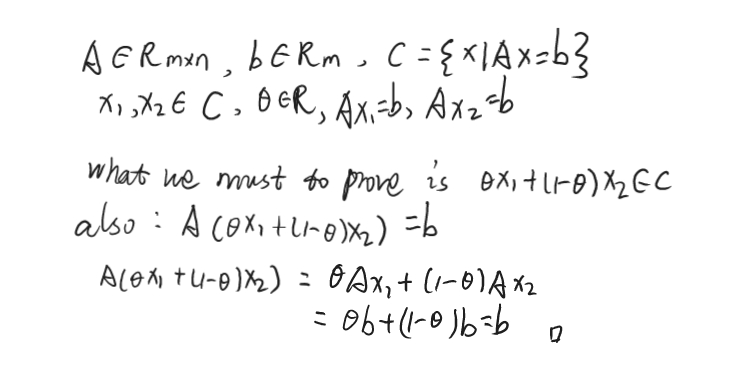 A∈Rm×n, b∈Rm, C={x|Ax=b}
x₁,x₂∈C, θ∈R, Ax₁=b, Ax₂=b
what we must to prove is θx₁+(1-θ)x₂∈C
also: A(θx₁+(1-θ)x₂)=b
A(θx₁+(1-θ)x₂) = θAx₁+(1-θ)Ax₂
= θb+(1-θ)b=b □